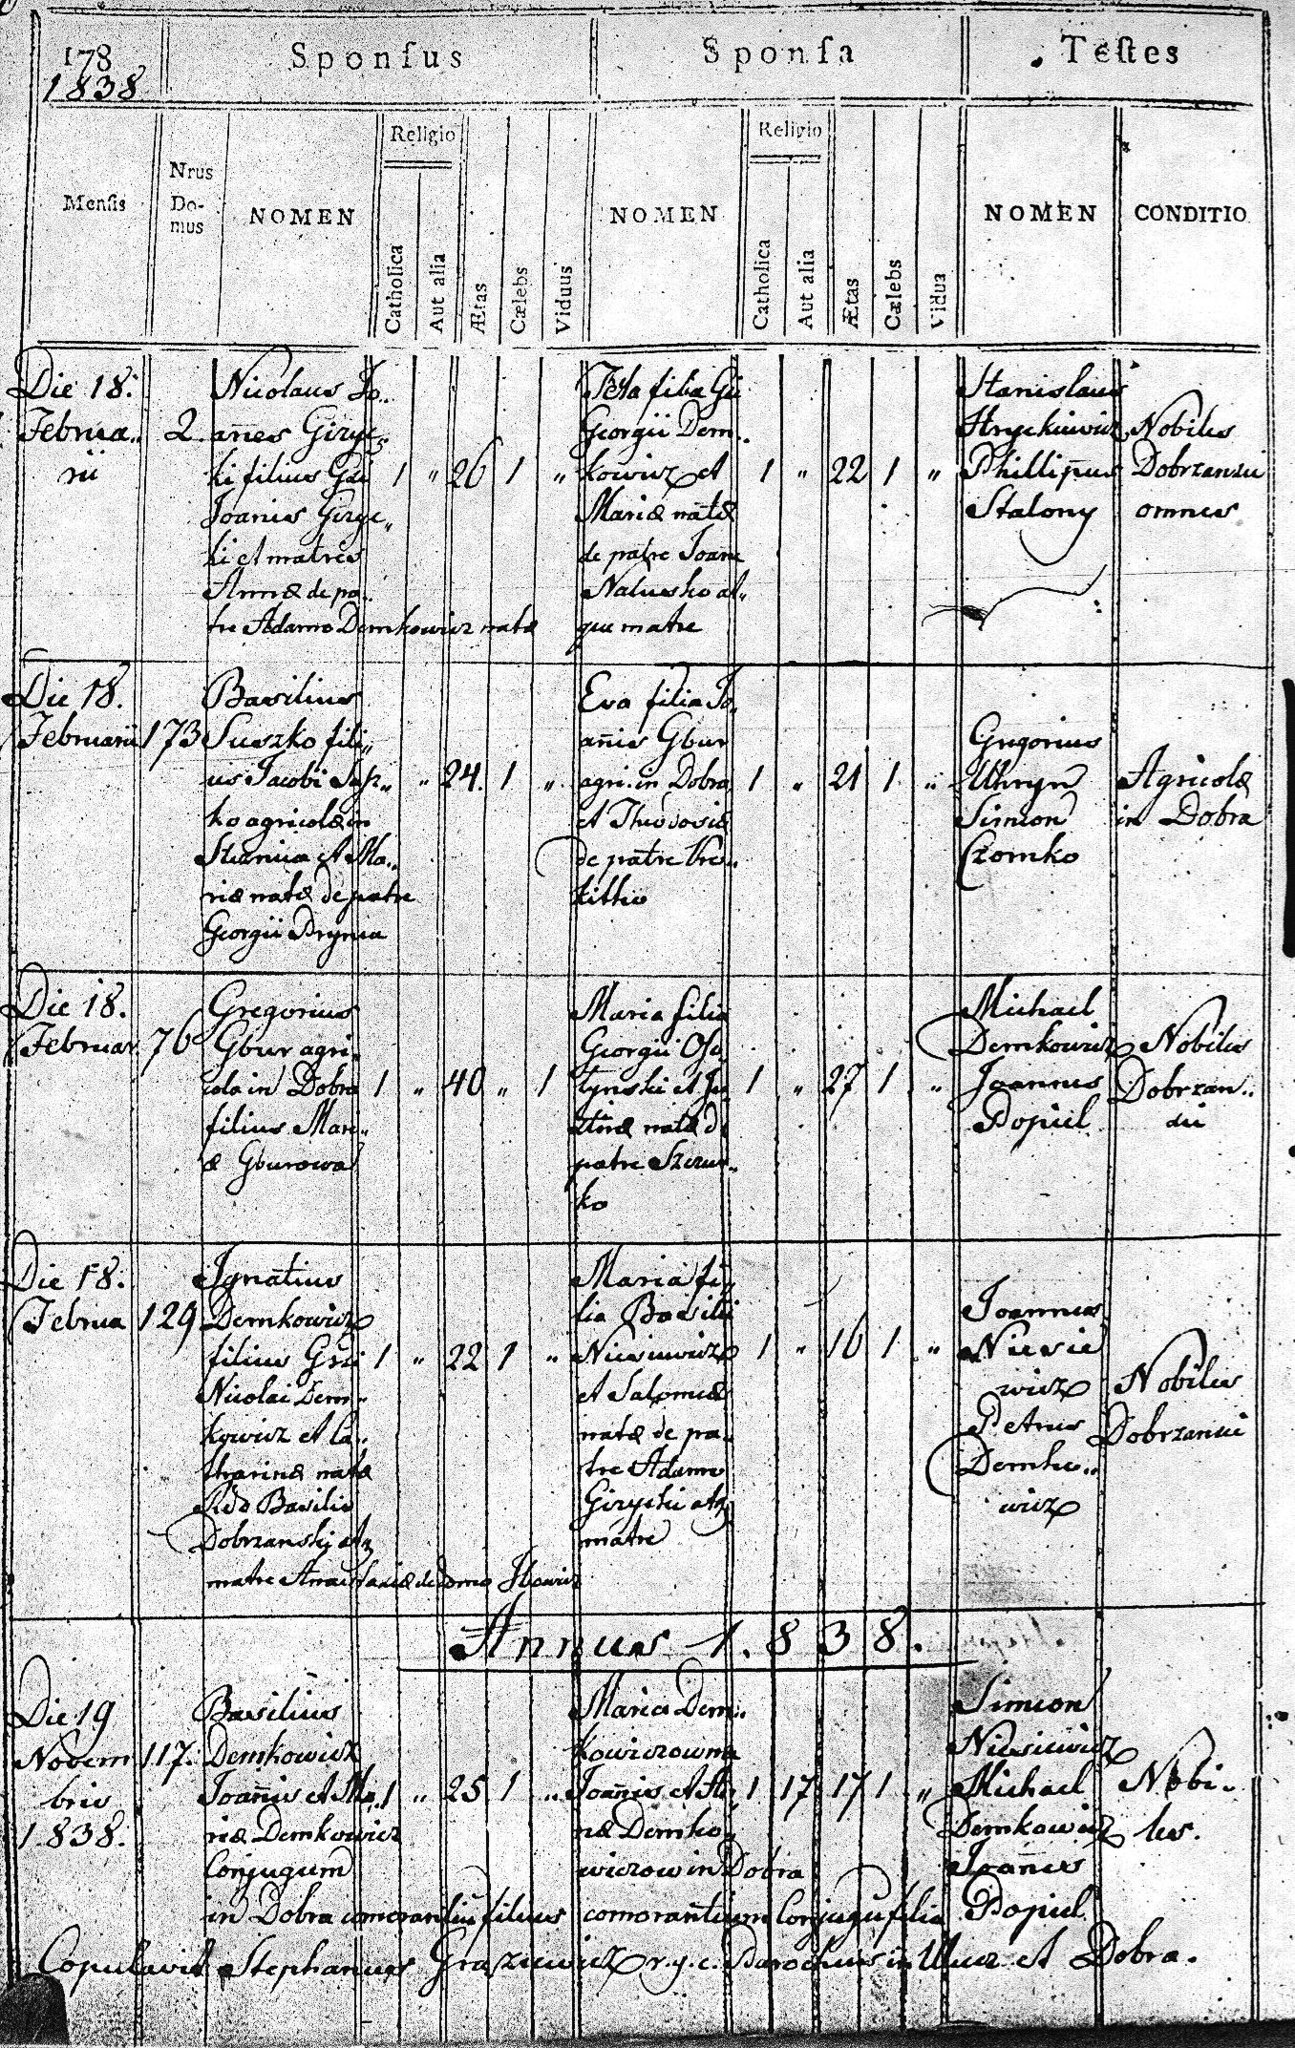 178
1838
Sponsus
Sponsa
Testes
Mensis
Nrus
Do-
mus
NOMEN
Religio
Catholica
Aut alia
Ætas
Cælebs
Viduus
NOMEN
Religio
Catholica
Aut alia
Ætas
Cælebs
Vidua
NOMEN
CONDITIO
Die 18.
Februa..
rii
2
Nicolaus Jo..
añes Giryc
ki filius
Joanis Giryc..
ki et matris
Annæ de pa..
tre Adamo Demkowicz natæ
1 " 26 1 "
filia
Georgii Dem..
kowicz et
Mariæ natæ
de patre Joane
at..
que matre
1 " 22 1 "
Stanislaus
Phillipus
Stalony
Nobiles
Dobrzansii
omnes
Die 18.
Februarii
173
Basilius
Suszko fili..
us Jacobi
ko agricolæ in
et Ma..
riæ natæ de patre
Georgii
" 24. 1 "
Eva filia Jo..
añis Gbur
agri. in Dobra
et Theodosiæ
de patre
1 " 21 1 "
Gregorius
Uhryn
Simon
Czomko
Agricolæ
in Dobra
Die 18.
Februar.
76
Gregorius
Gbur agri..
cola in Dobra
filius Mari..
æ Gburowa
1 " 40 " 1
Maria filia
Georgii
natæ de
patre
ko
1 " 27 1 "
Michael
Demkowicz
Joannes
Popiel
Nobiles
Dobrzan..
sii
Die 18.
Februa
129
Ignatius
Demkowicz
filius
Nicolai Dem..
kowicz et Ca..
tharinæ natæ
Basilio
Dobrzanskj
matre Anastasiæ de domo
1 " 22 1 "
Maria fi..
lia Basilii
Niesiewicz
et Salomeæ
natæ de pa..
tre Adamo
Girycki
matre
1 " 16 1 "
Joannes
Niesie
wicz
Petrus
Demko..
wicz
Nobiles
Dobrzansii
Annus 1838.
Die 19
Novem
bris
1838.
117.
Basilius
Demkowicz
Joañis et Ma..
riæ Demkowicz
Conjugum
in Dobra comorantiũ filius
1 " 25 1 "
Maria Dem..
kowiczowna
Joañis et
næ Demko..
wiczow in Dobra
comorantium Conjugũ filia
1 17 17 1 "
Simeon
Niesiewicz
Michael
Demkowicz
Joañes
Popiel
Nobi..
les.
Copulavit Stephanus r. g. c. Parochus in Ulucz et Dobra.